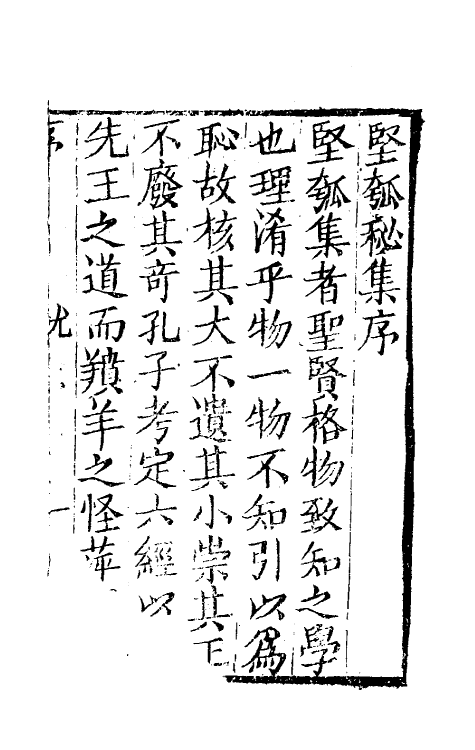 堅瓠秘集序
堅瓠集者聖賢格物致知之學
也理淆乎物一物不知引以為
恥故核其大不遺其小崇其正
不廢其奇孔子考定六經以
先王之道而羵羊之怪萍
序